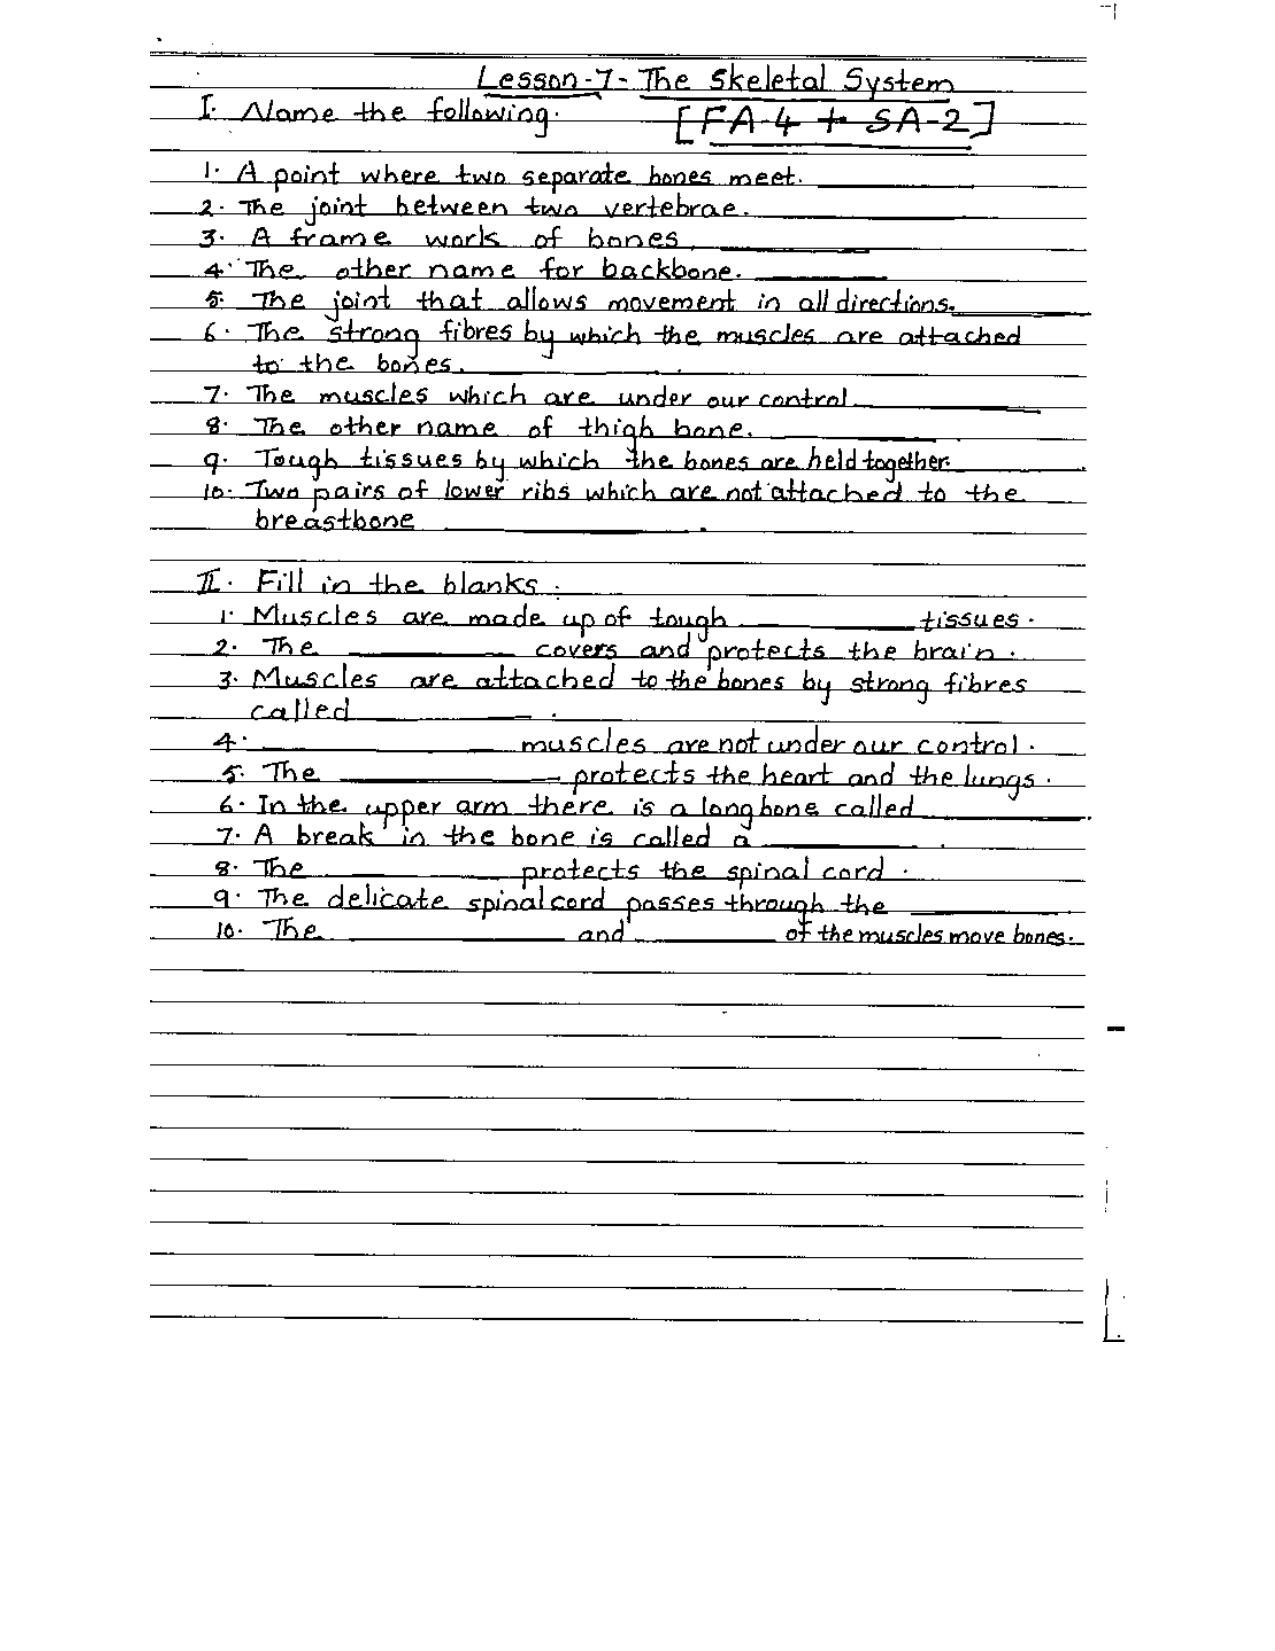 Lesson-7- The Skeletal System
I. Name the following. [FA-4 + SA-2]
1. A point where two separate bones meet. ________
2. The joint between two vertebrae. ________
3. A frame work of bones ________
4. The other name for backbone. ________
5. The joint that allows movement in all directions. ________
6. The strong fibres by which the muscles are attached
to the bones. ________.
7. The muscles which are under our control ________
8. The other name of thigh bone. ________.
9. Tough tissues by which the bones are held together. ________.
10. Two pairs of lower ribs which are not attached to the
breastbone ________.
II. Fill in the blanks :
1. Muscles are made up of tough ________ tissues.
2. The ________ covers and protects the brain.
3. Muscles are attached to the bones by strong fibres
called ________.
4. ________ muscles are not under our control.
5. The ________ protects the heart and the lungs.
6. In the upper arm there is a long bone called ________.
7. A break in the bone is called a ________.
8. The ________ protects the spinal cord.
9. The delicate spinal cord passes through the ________.
10. The ________ and ________ of the muscles move bones.